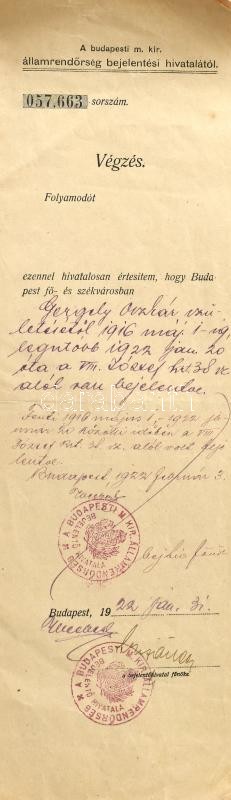 A budapesti m. kir.
államrendőrség bejelentési hivatalától.
057,663 sorszám.
Végzés.
Folyamodót
ezennel hivatalosan értesítem, hogy Buda
pest fő- és székvárosban
Gergely Oszkár szü
letésétől 1916 máj 1-ig,
legutóbb 1922 jan. 20
óta, a VIII. József krt 38 sz.
alól van bejelentve.
Fenti 1916 május 1- 1922 ja-
nuár 20 közötti időben a VIII
József krt. 38. sz. alól volt beje
lentve.
Budapest, 1922 3.
A BUDAPESTI M. KIR. ÁLLAMRENDŐRSÉG
BEJELENTŐ HIVATALA
Budapest, 1922 jan. 31.
a bejelentőhivatal főnöke
A BUDAPESTI M. KIR. ÁLLAMRENDŐRSÉG
BEJELENTŐ HIVATALA